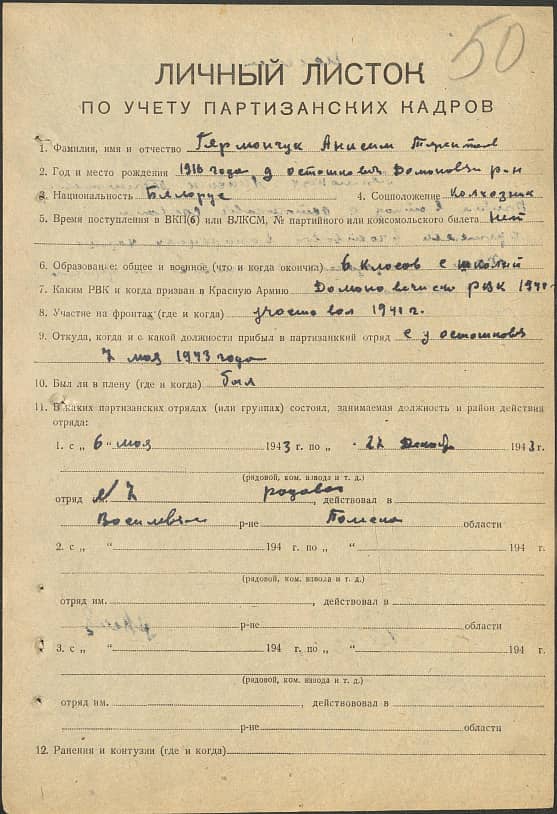 50
ЛИЧНЫЙ ЛИСТОК
ПО УЧЕТУ ПАРТИЗАНСКИХ КАДРОВ
1. Фамилия, имя и отчество Гермончук Анисим
2. Год и место рождения 1916 года д осташкович Домоновги р-н
3. Национальность Белорус 4. Соцположение Колхозник
5. Время поступления в ВКП(б) или ВЛКСМ, № партийного или комсомольского билета Нет
6. Образование: общее и военное (что и когда окончил) 6 класов с школий
7. Каким РВК и когда призван в Красную Армию РВК 1941
8. Участие на фронтах (где и когда) участвовал 1941 г.
9. Откуда, когда и с какой должности прибыл в партизанкий отряд с д осташкови
7 мая 1943 года
10. Был ли в плену (где и когда) был
11. В каких партизанских отрядах (или группах) состоял, занимаемая должность и район действия
отряда:
1. с „ 6 “ мая 1943 г. по „ 27 1943 г.
(рядовой, ком. взвода и т. д.)
отряд № 7 , действовал в
р-не области
2. с „ “ 194 г. по „ “ 194 г.
(рядовой, ком. взвода и т. д.)
отряд им. , действовал в
р-не области
3. с „ “ 194 г. по „ “ 194 г.
(рядовой, ком. взвода и т. д.)
отряд им. , действовал в
р-не области
12. Ранения и контузии (где и когда)